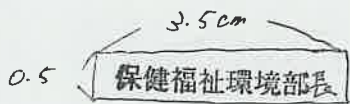 3.5cm
0.5
保健福祉環境部長